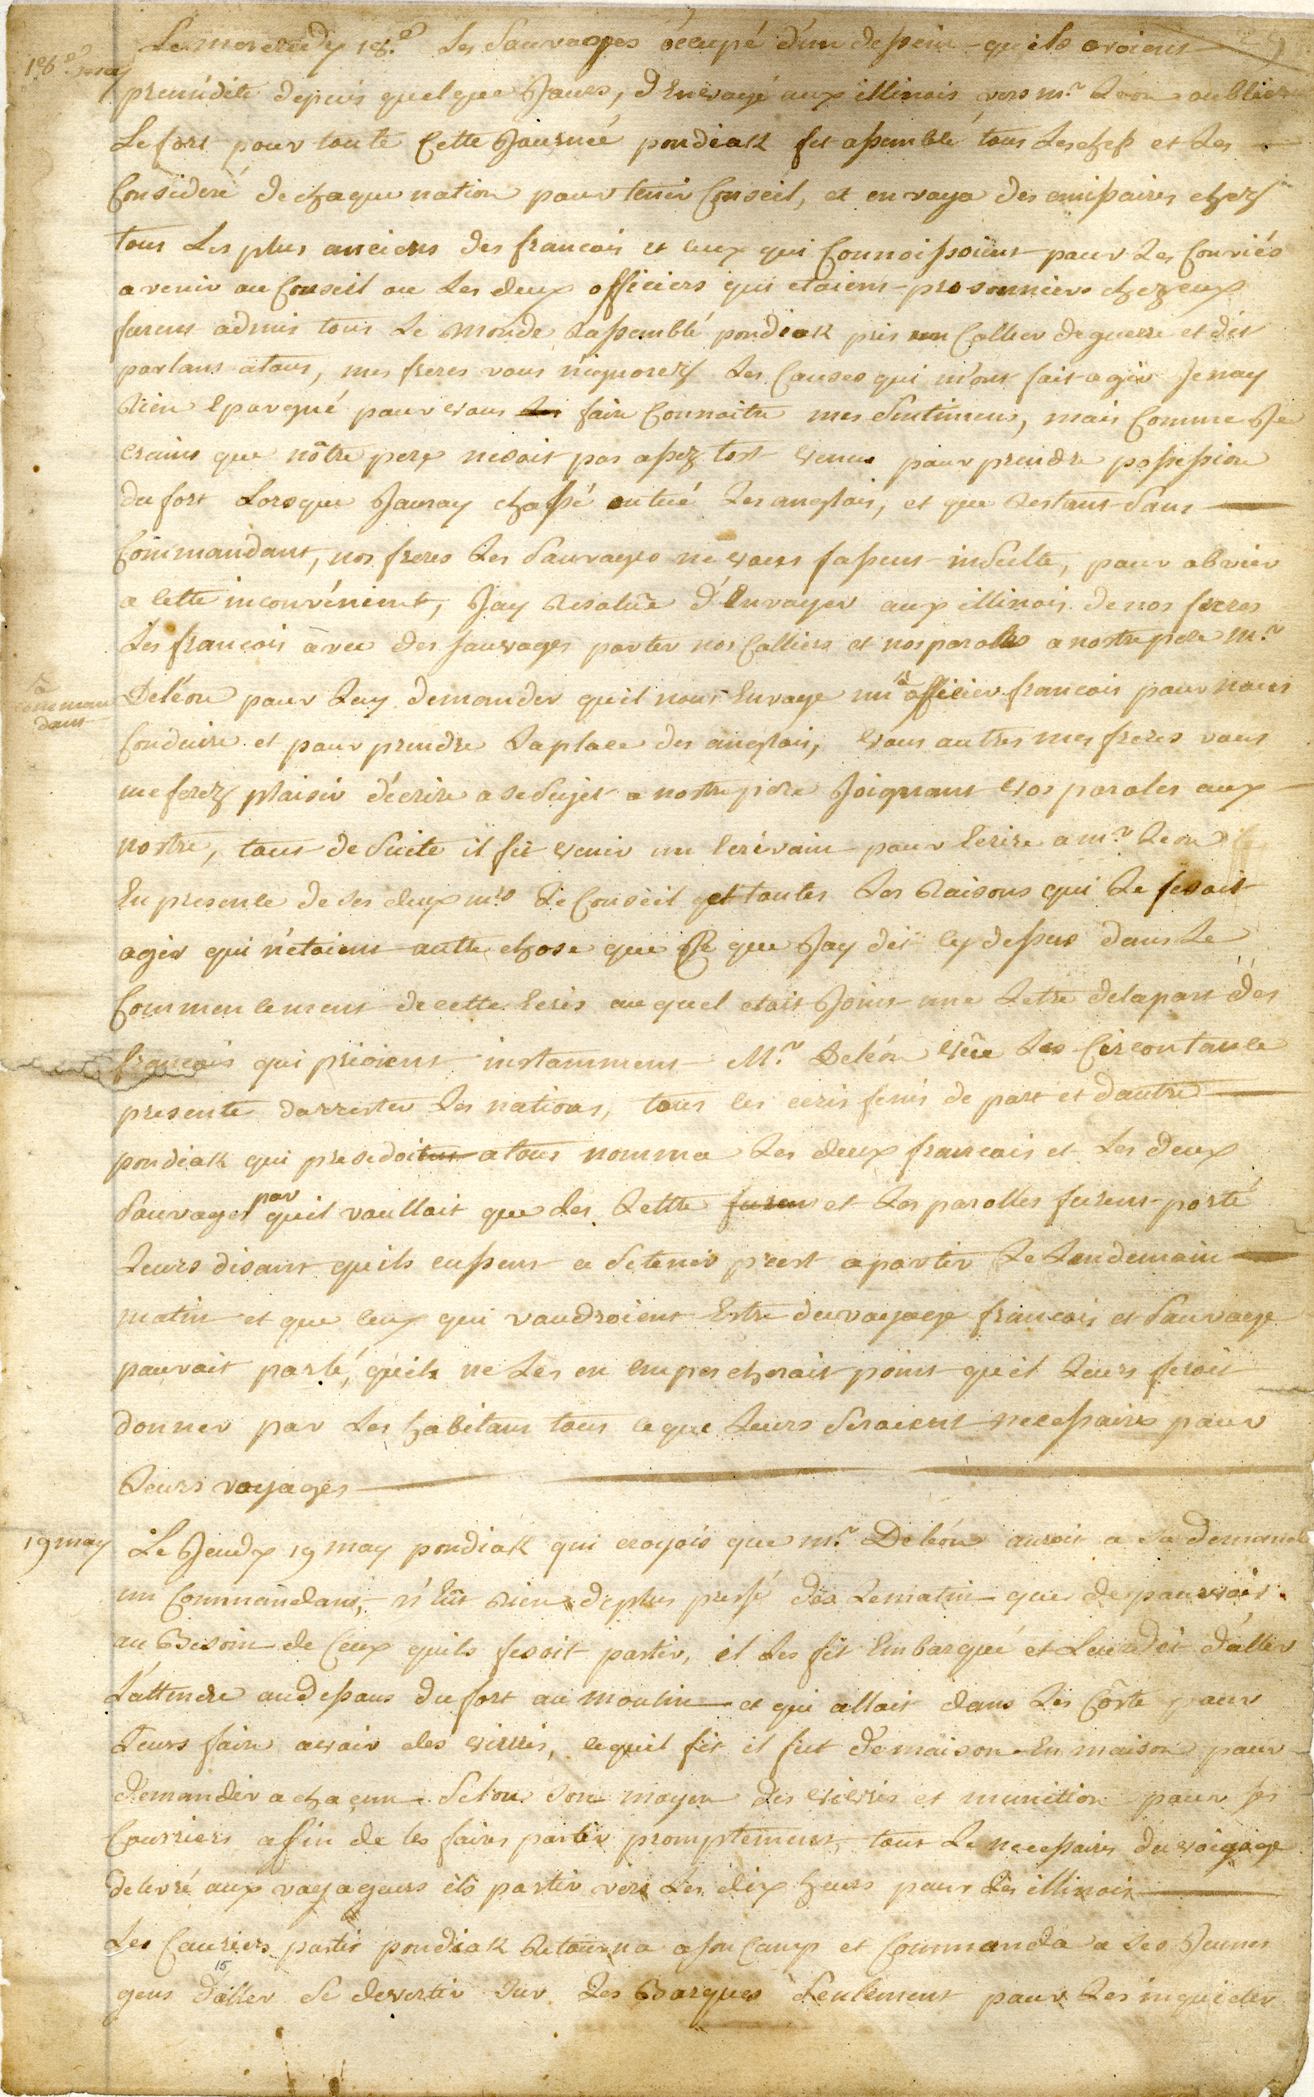 18.e may
Le mercredy 18.e Les Sauvages ocupé d'un dessein qu'ils avoient
premidité depuis quelque Jours, d'Envoyé aux illinois vers m.r Leon oublier
Le fort pour toute Cette Journeé pondiak fit assemblé tous Les chefs et Les
Considéré de chaque nation pour tenir Conseil, et envoya des emissaires chez
tous Les plus anciens des francois et ceux qui Connoissoient pour Les Conviés
a venir au Conseil ou Les deux officiers qui etoient prisonniers chez eux
furent admis tous Le monde Rassemblé pondiak pris un Collier de guerre et dit
parlans a tous, mes freres vous n'ignorez Les Causes qui m'ont fait agir Je nay
Rien Epargné pour vous faire Connoitre mes Sentimens, mais Comme Je
crains que nôtre pere ne soit pas assez tost venus pour prendre possession
du fort Lorsque Jauray chassé ou tué Les anglois, et que Restant Sans
Commandant, nos freres Les Sauvages ne vous fassent insulte, pour obvier
a Cette inconvénient, Jay Resolüe d'Envoyer aux illinois de nos freres
Les francois avec des Sauvages porter nos Colliers et nos parolles a nostre pere M.r
a
comman
dant
Deléon pour Luy demander qu'il nous Envoye un a officier francois pour nous
Conduire et pour prendre La place des anglois, vous autres mes freres vous
me ferez plaisir d'écrire a Se Sujet a nostre pere Joignant vos paroles aux
nostre, tous de Suite il fit venir un Ecrivain pour Ecrire a m.r Leon
En presence de Ses deux mrs Le Conseil et toutes Les Raisons qui Le fesoit
agir qui n'etoient autre chose que Ce que Jay dit Cy dessus dans Le
Commencement de cette Ecris au quel etoit Joint une Letre de la part des
francois qui prioient instamment M.r Deléon vûe Les Circontance
presente darrester Les nations, tous les ecris finis de part et dautre
pondiak qui presedoitent a tous nomma Les deux francois et Les deux
Sauvages par qu'il voulloit que des Lettre furent et Les parolles furent porté
Leurs disant qu'ils eussent a Se tenir prest a partir Le Lendemain
matin et que Ceux qui voudroient Estre du voyage francois et Sauvage
pouvoit parlé, qu'ils ne Les en empescheroit point qu'il Leurs feroit
donner par Les habitans tous ce que Leurs Seroient necessaire pour
Leurs voyages
19 may
Le Jeudy 19 may pondiak qui croyois que m.r Deléon auroit a Sa demande
un Commandant, n'Eût Rien de plus pressé des Le matin que de pourvoir
au Besoin de Ceux qu'ils fesoit partir, il Les fit Embarqué et Leur dit d'aller
L'attendre au dessous du fort au moulin et qui alloit dans Les Côste pour
Leurs faire avoir des vivres, ce quil fit il fut de maison En maison pour
demander a chacun Selon Son moyen des vivres et munition pour Ses
Courriers affin de les faires partir promptement, tout Le necessaire du voigage
delivré aux voyageurs ils partir vers Les dix heures pour Les illinois
Les Couriers partis pondiak Retourna a Son Camp et Commanda a Ses Jeunes
15
gens d'aller Se divertir Sur Les Barques Seulement pour Les inquieter